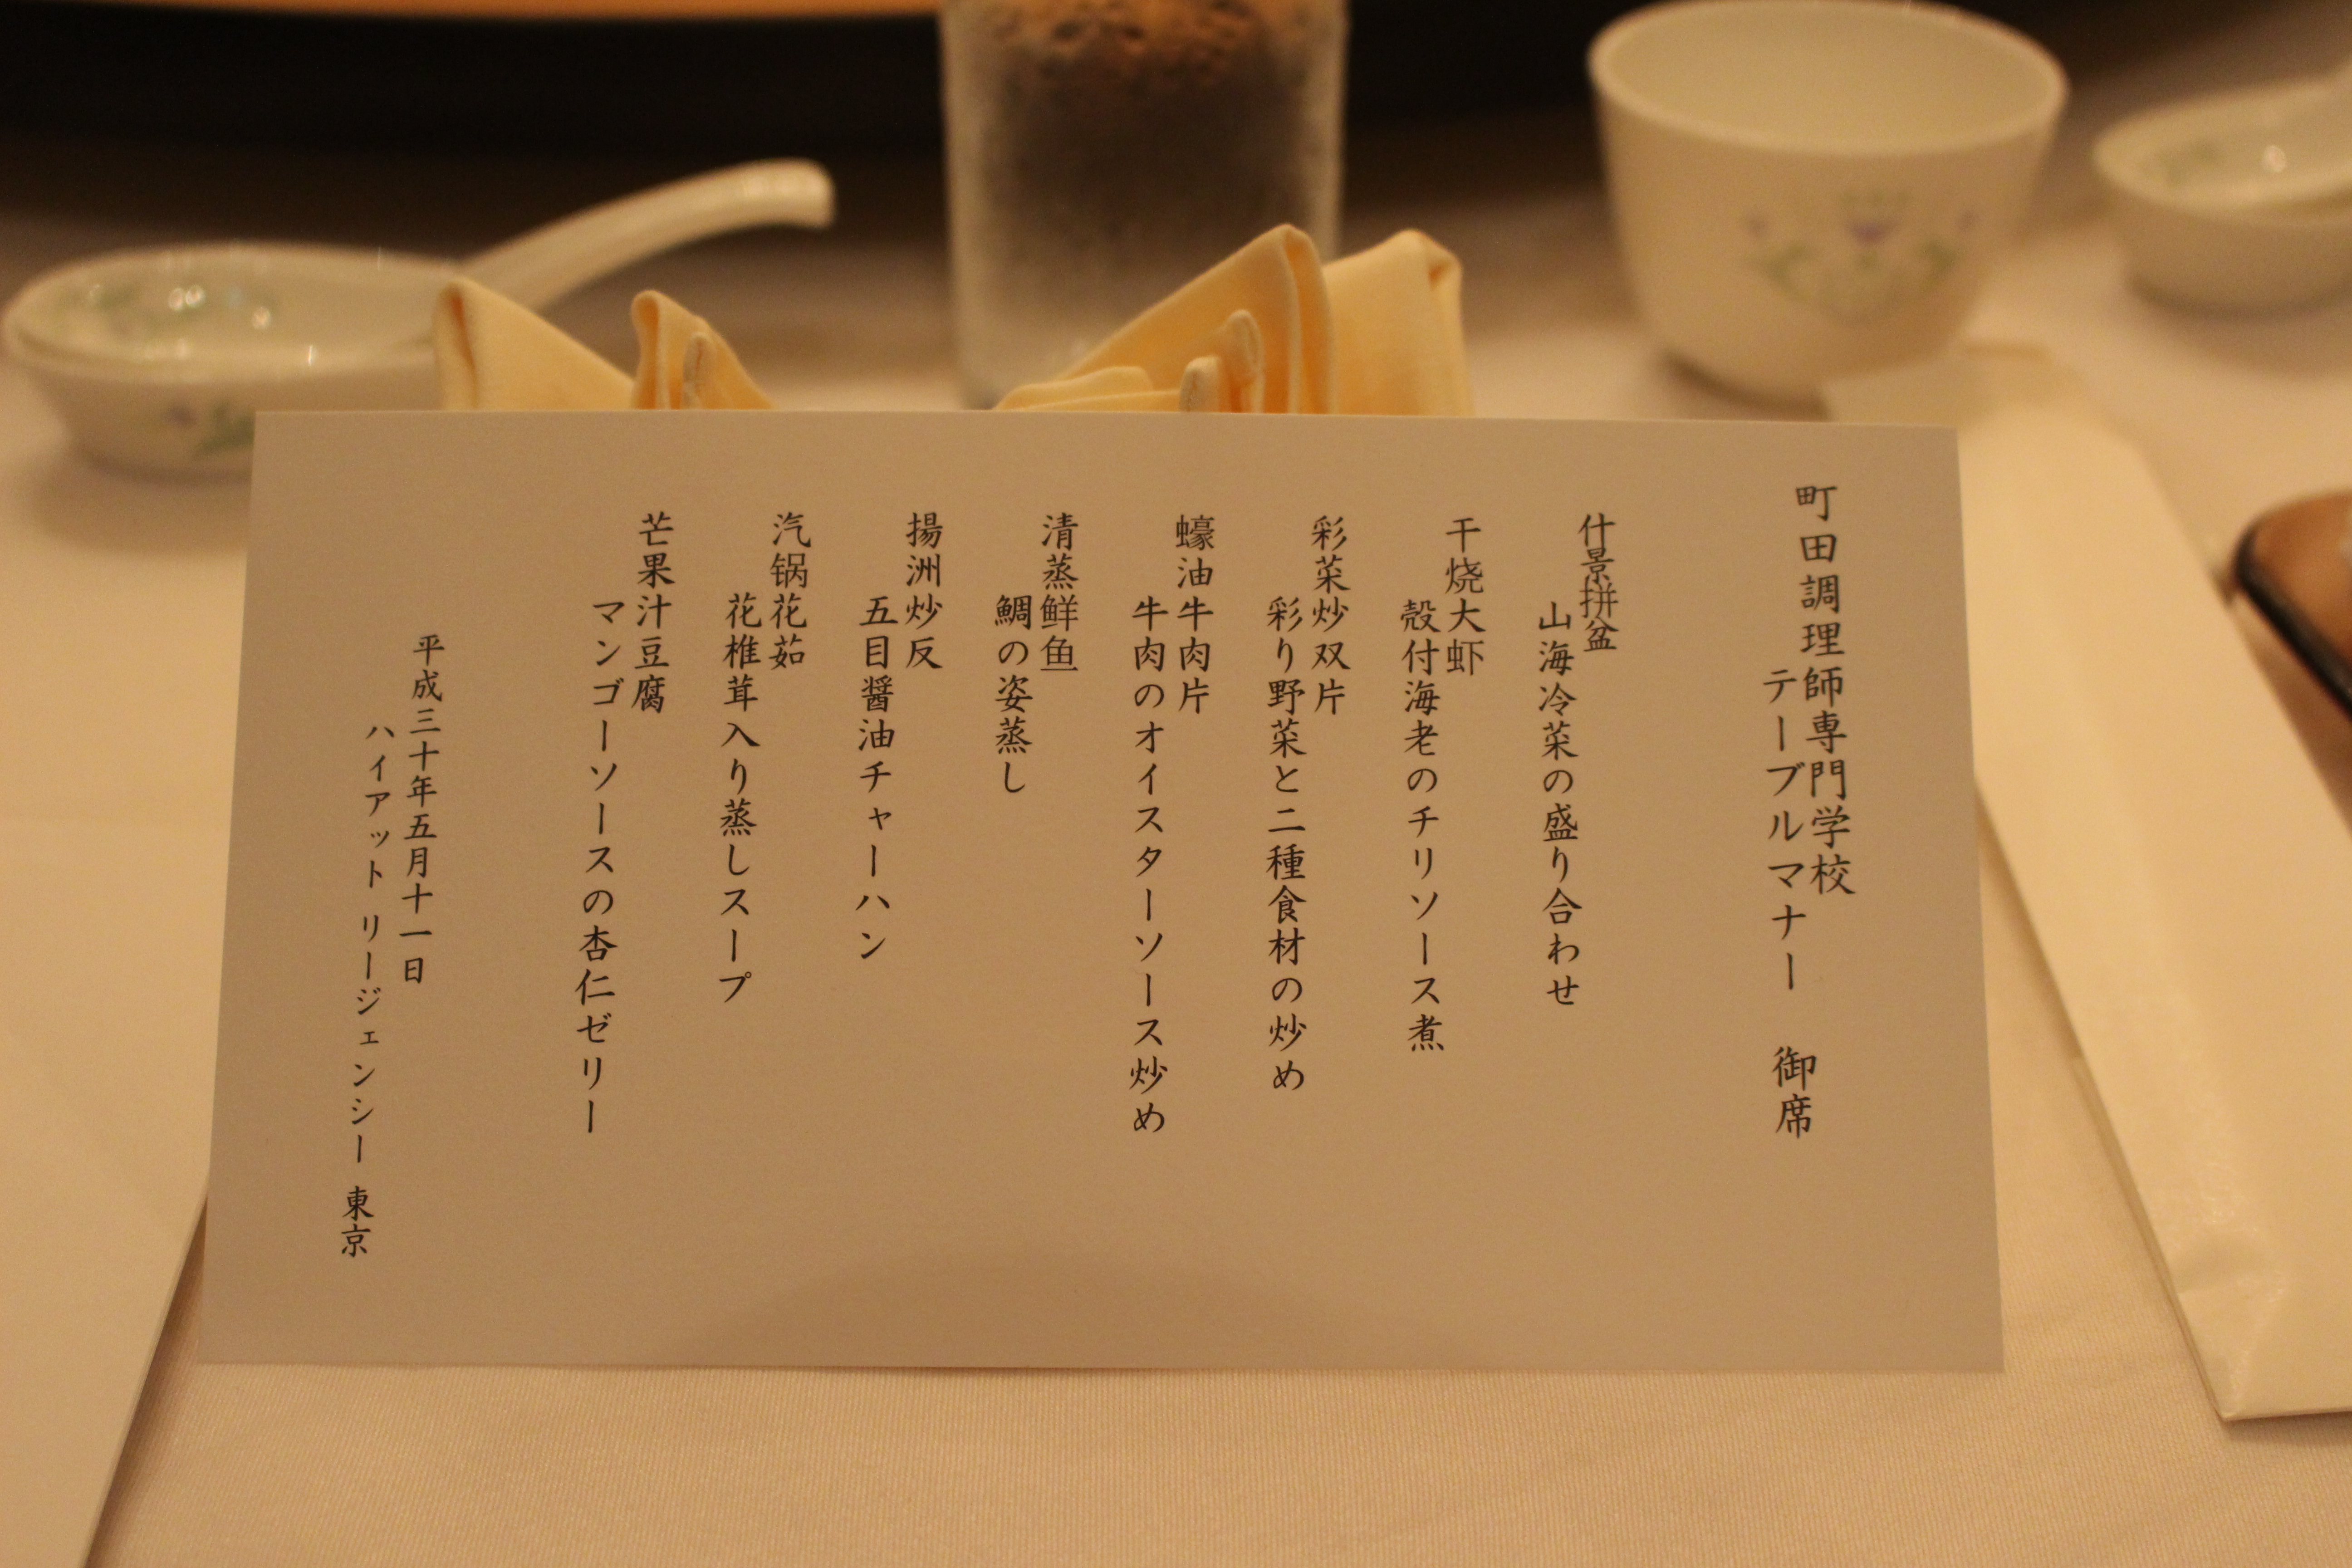 町田調理師専門学校
テーブルマナー　御席
什景拼盆
山海冷菜の盛り合わせ
干烧大虾
殻付海老のチリソース煮
彩菜炒双片
彩り野菜と二種食材の炒め
蠔油牛肉片
牛肉のオイスターソース炒め
清蒸鲜鱼
鯛の姿蒸し
揚洲炒反
五目醤油チャーハン
汽锅花茹
花椎茸入り蒸しスープ
芒果汁豆腐
マンゴーソースの杏仁ゼリー
平成三十年五月十一日
ハイアット リージェンシー 東京